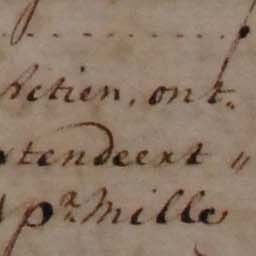 Actien, ont„
xtendeert „
pr. Mille